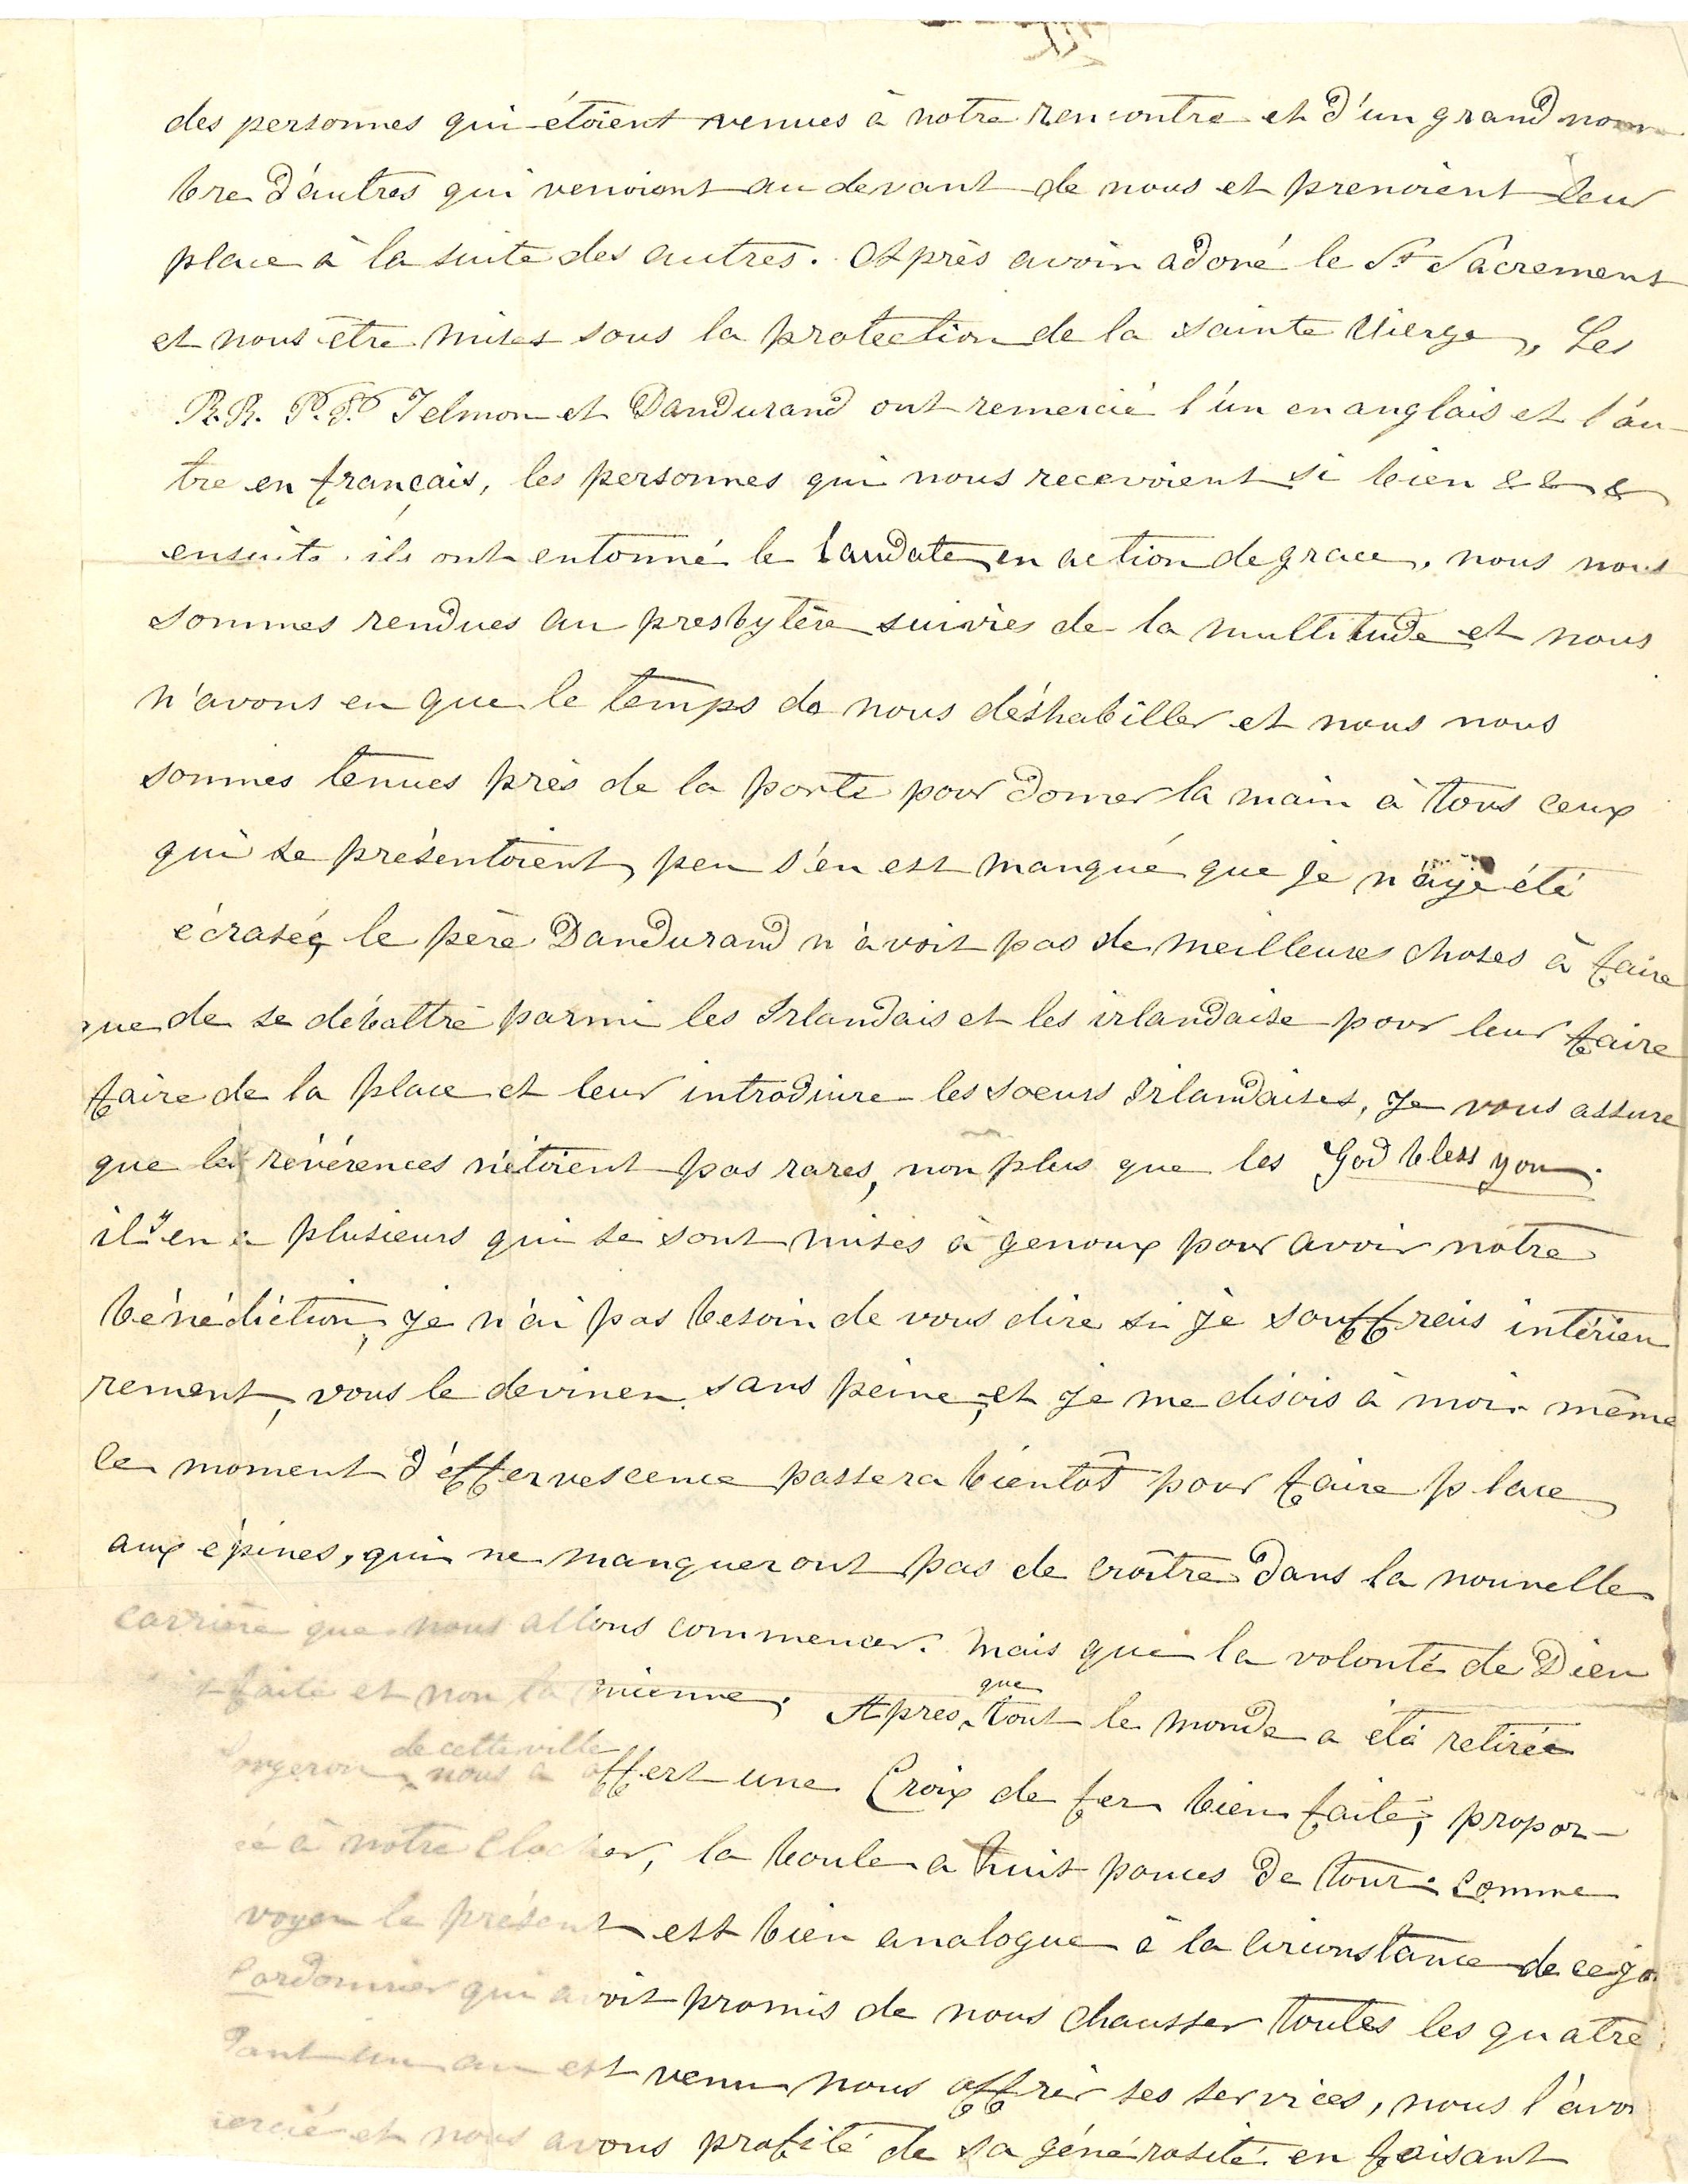 des personnes qui étoient venues à notre rencontre et d'un grand nom
bre d'autres qui venoient au devant de nous et prenoient leur
place à la suite des autres. Après avoir adoré le St Sacrement
et nous être mises sous la protection de la sainte Vierge, Les
R.R. P.P. Telmon et Dandurand ont remercié l'un en anglais et l'au-
tre en français, les personnes qui nous recevoient si bien & & &
ensuite ils ont entonné le laudate en action de grace, nous nous
sommes rendues au presbytère suivies de la multitude et nous
n'avons eu que le temps de nous déshabiller et nous nous
sommes tenues près de la porte pour donner la main à tous ceux
qui se présentoient, peu s'en est manqué que je n'aye été
écrasée, le père Dandurand n'avoit pas de meilleures choses à faire
que de se débattre parmi les Irlandais et les irlandaise pour leur faire
faire de la place et leur introduire les soeurs Irlandaises, Je vous assure
que les révérences n'étoient pas rares, non plus que les God bless you.
il y en a plusieurs qui se sont mises à genoux pour avoir notre
bénédiction, je n'ai pas besoin de vous dire si je souffrais intérieu
rement, vous le devinez sans peine, et je me disois à moi-même
ce moment d'effervescence passera bientôt pour faire place
aux épines, qui ne manqueront pas de croître dans la nouvelle
carrière que nous allons commencer. Mais que la volonté de Dieu
soit faite et non la mienne. Après que tout le monde a été retirée
forgeron de cette ville nous a offert une Croix de fer bien faite, propor-
né à notre clocher, la boule a huit pouces de tour. Comme
voyez le présent est bien analogue à la circonstance de ce jo
Cordonnier qui avoit promis de nous chausser toutes les quatre
dant un an est venu nous offrir ses services, nous l'avo
ercié et nous avons profité de sa générosité en faisant